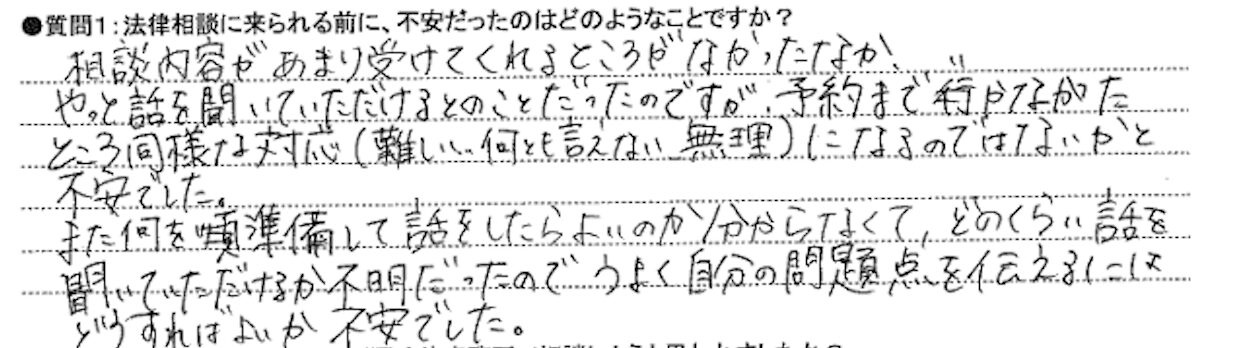 ●質問1：法律相談に来られる前に、不安だったのはどのようなことですか？
相談内容があまり受けてくれるところがなかったなか、
やっと話を聞いていただけるとのことだったのですが、予約まで行かなかった
ところ同様な対応（難しい、何とも言えない、無理）になるのではないかと
不安でした。
また何を準備して話をしたらよいのか分からなくて、どのくらい話を
聞いていただけるか不明だったのでうまく自分の問題点を伝えるには
どうすればよいか不安でした。